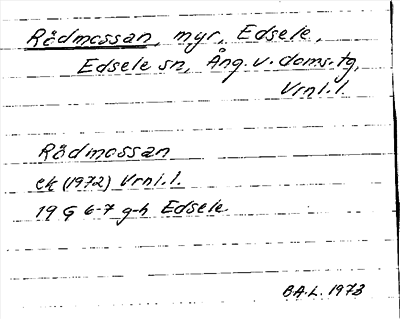 Rödmossan, myr, Edsele,
Edsele sn, Ång. v. doms.tg,
Vrnl.l.
Rödmossan
ek (1972) Vrnl.l.
19 G 6-7 g-h Edsele
B.A.L. 1973